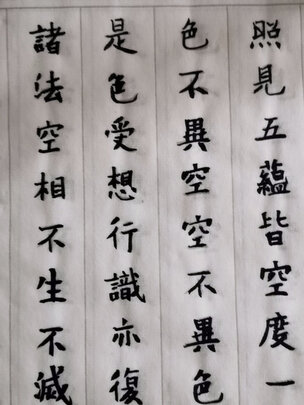 照見五蘊皆空度一
色不異空空不異色
是色受想行識亦復
諸法空相不生不滅